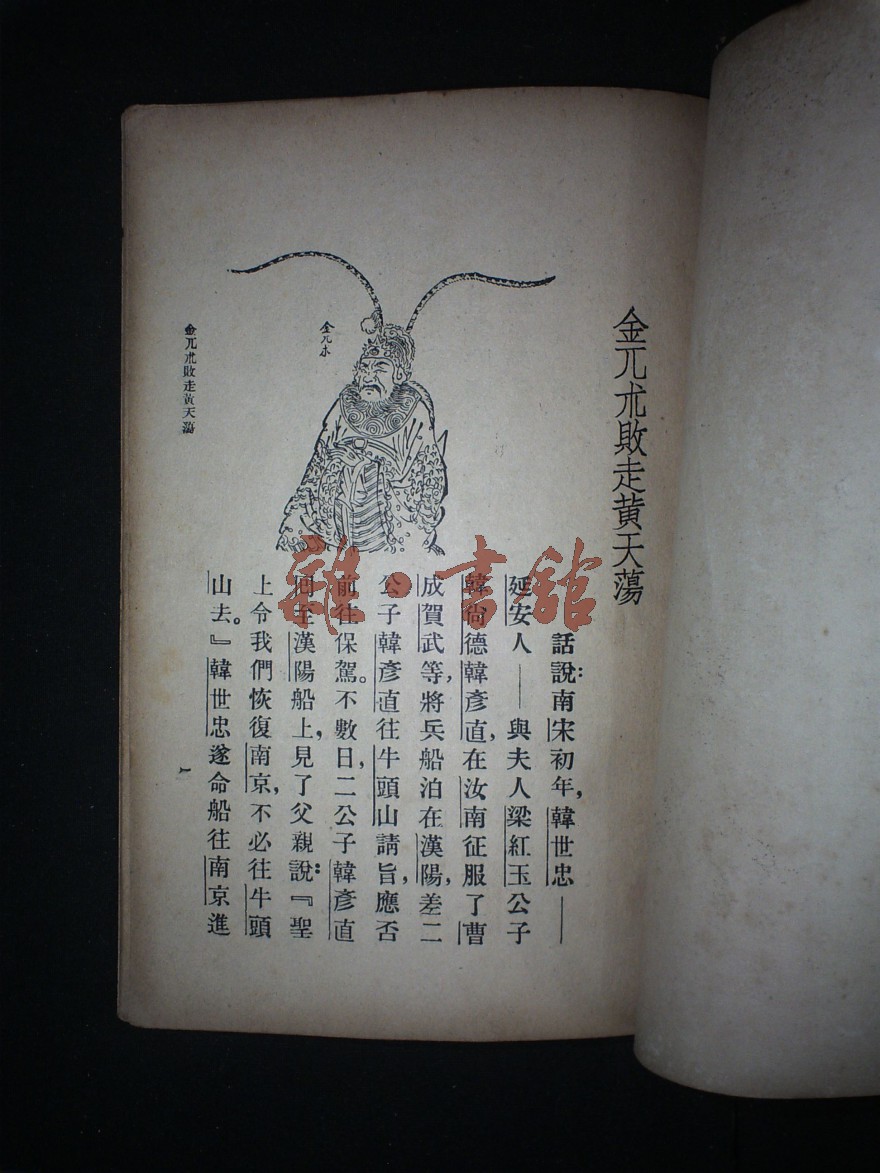 金兀朮敗走黃天蕩
話說：南宋初年，韓世忠——
延安人——與夫人梁紅玉公子
韓尙德韓彥直，在汝南征服了曹
成賀武等，將兵船泊在漢陽，差二
公子韓彥直往牛頭山請旨，應否
前往保駕。不數日，二公子韓彥直
回至漢陽船上，見了父親說：『聖
上令我們恢復南京，不必往牛頭
山去。』韓世忠遂命船往南京進
金兀朮
金兀朮敗走黃天蕩
一
雜·書館